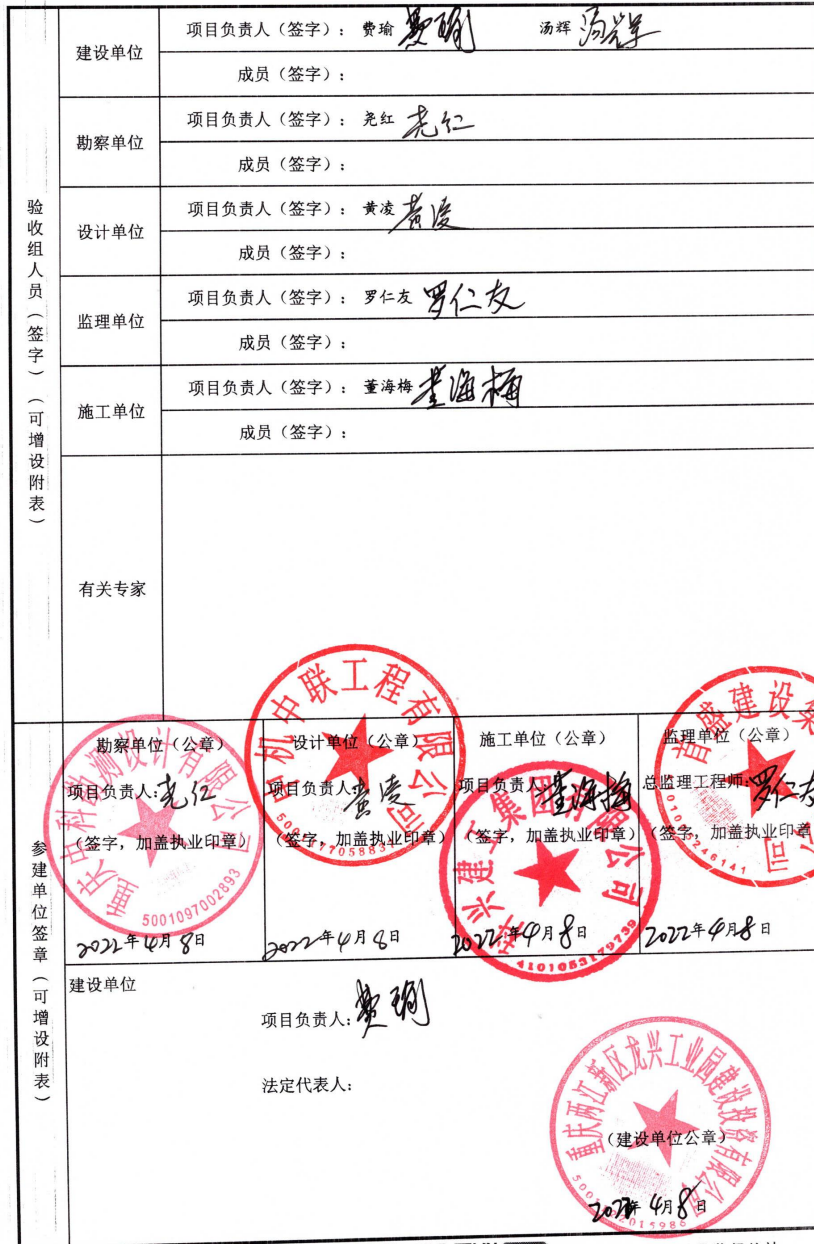 验收组人员（签字）（可增设附表）
建设单位
项目负责人（签字）：费瑜 费瑜 汤辉 汤辉
成员（签字）：
勘察单位
项目负责人（签字）：尧红 尧红
成员（签字）：
设计单位
项目负责人（签字）：黄凌 黄凌
成员（签字）：
监理单位
项目负责人（签字）：罗仁友 罗仁友
成员（签字）：
施工单位
项目负责人（签字）：董海梅 董海梅
成员（签字）：
有关专家
参建单位签章（可增设附表）
勘察单位（公章）
项目负责人：尧红
（签字，加盖执业印章）
2022年4月8日
重庆中科勘测设计有限公司
5001097002893
设计单位（公章）
项目负责人：黄凌
（签字，加盖执业印章）
2022年4月8日
中机中联工程有限公司
施工单位（公章）
项目负责人：董海梅
（签字，加盖执业印章）
2022年4月8日
4101053179739
监理单位（公章）
总监理工程师：罗仁友
（签字，加盖执业印章
2022年4月8日
首盛建设集
公司
建设单位
项目负责人：费瑜
法定代表人：
（建设单位公章）
2022年4月8日
重庆两江新区龙兴工业园建设投资有限公司